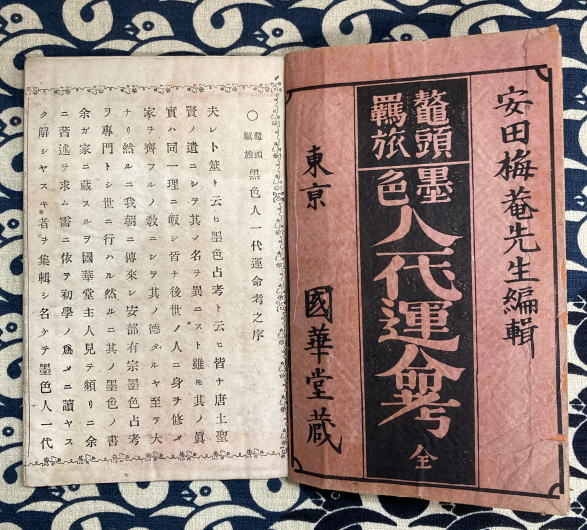 安田梅菴先生編輯
鼇頭
羈旅
墨色人一代運命考
全
東京
國華堂藏
〇鼇頭羈旅黑色人一代運命考之序
夫レト筮ト云ヒ墨色占考ト云ヒ皆ナ唐土聖
賢ノ遺ニシテ其ノ名ヲ異ニスト雖𪜈其ノ眞
實ハ同一理ニ皈シ皆ナ後世ノ人ニ身ヲ修メ
家ヲ齊フルノ敎ニシテ其ノ德タルヤ至テ大
ナリ然ルニ我朝ニ傳來シ安部有宗墨色占考
ヲ專門トシ世ニ行ハル然ルニ其ノ墨色ノ書
余ガ家ニ藏スルヲ國華堂主人見テ頻リニ余
ニ著述ヲ求ム需ニ依テ初學ノ爲メニ讀ヤス
ク解シヤスキ者ヲ集輯シ名ケテ墨色人一代